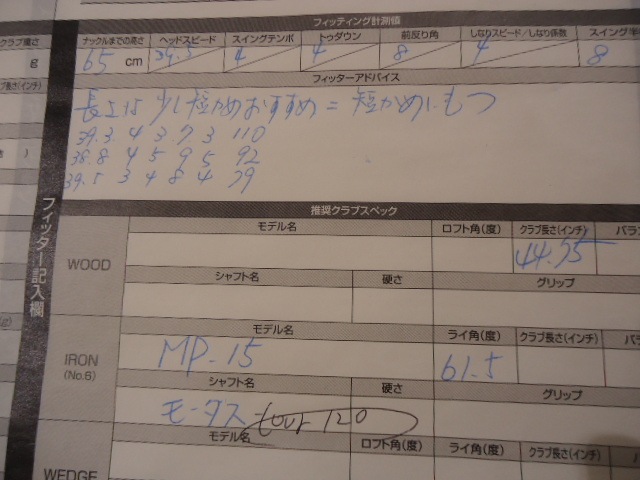 フィッティング計測値
クラブ重さ ナックルまでの高さ ヘッドスピード スイングテンポ トゥダウン 前反り角 しなりスピード/しなり係数 スイング
g 65 cm 39.5 4 4 8 4 8
フィッターアドバイス
長さは少し短かめおすすめ = 短かめにもつ
39.3 4 3 7 3 110
38.8 4 5 9 5 92
39.5 3 4 8 4 79
フィッター記入欄
推奨クラブスペック
モデル名 ロフト角(度) クラブ長さ(インチ) バラン
WOOD 44.75
シャフト名 硬さ グリップ
モデル名 ライ角(度) クラブ長さ(インチ) バラ
IRON MP-15 61.5
(No.6)
シャフト名 硬さ グリップ
モーダス tour 120
モデル名 ロフト角(度) ライ角(度) クラブ長さ(インチ) バ
WEDGE